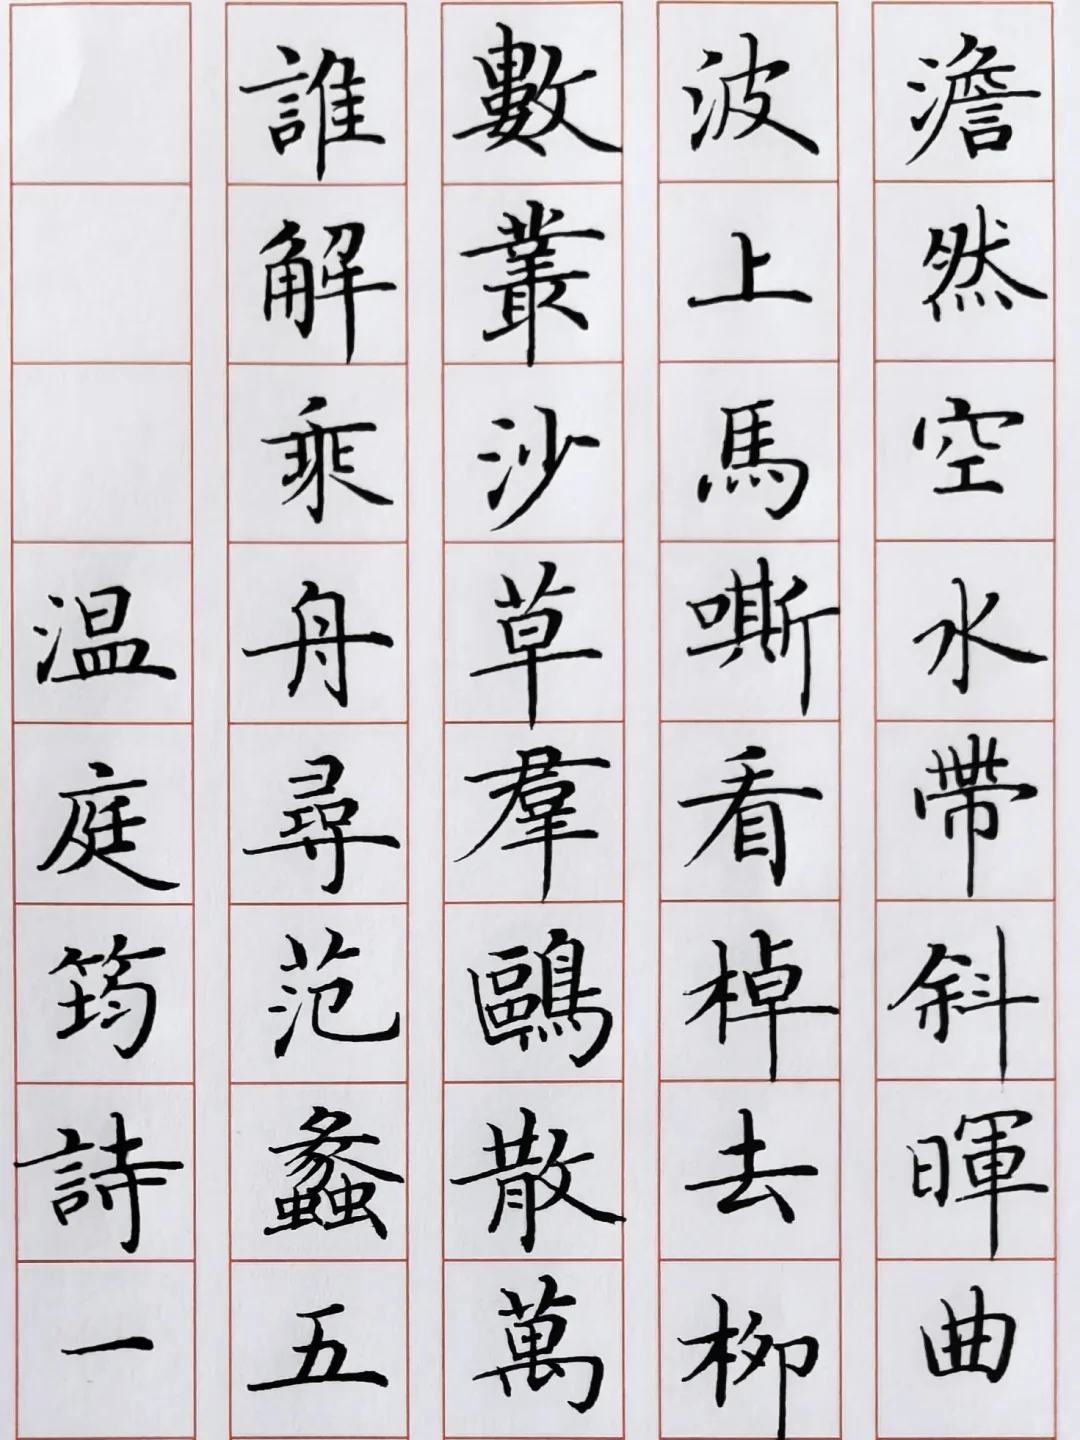 澹然空水帶斜暉曲
波上馬嘶看棹去柳
數叢沙草羣鷗散萬
誰解乘舟尋范蠡五
温庭筠詩一